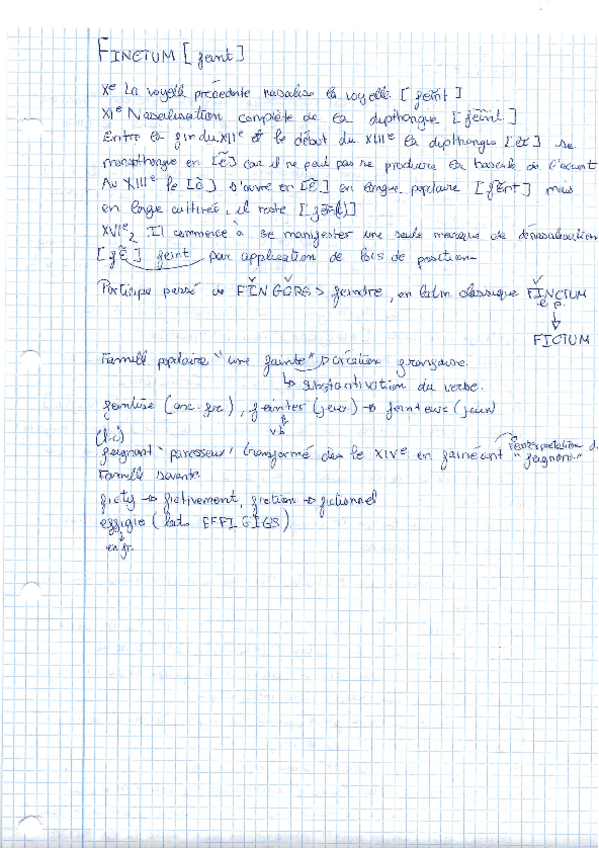 FINCTUM [feint]
Xe La voyelle précédente nasalise la voyelle [feĩnt]
XIe Nasalisation complète de la dipthongue [fẽĩnt]
Entre la fin du XIIe et le début du XIIIe la dipthongue [ẽĩ] se
monopthongue en [ẽ] car il ne peut pas se produire la bascule de l'accent
Au XIIIe le [ẽ] s'ouvre en [ɛ̃] en langue populaire [fɛ̃nt] mais
en langue cultivée, il reste [fẽn(t)]
XVIe2 Il commence à se manifester une seule marque de dénasalisation
[fɛ̃] feint par application de lois de position
Participe passé de FĬNGĔRE > feindre, en latin classique FĬNCTUM
e p
FICTUM
Famille populaire "une fainte" → création française.
↳ substantivation du verbe.
feintise (anc. frc), feinter (jeux) → feinteur (jeux)
vb
(fic)
feignant "paresseux" transformé dans le XIVe en fainéant "feignant"
réinterprétation d
Famille savante
fictif → fictivement, fiction → fictionnel
effigie (latin EFFIGIES)
en fr.